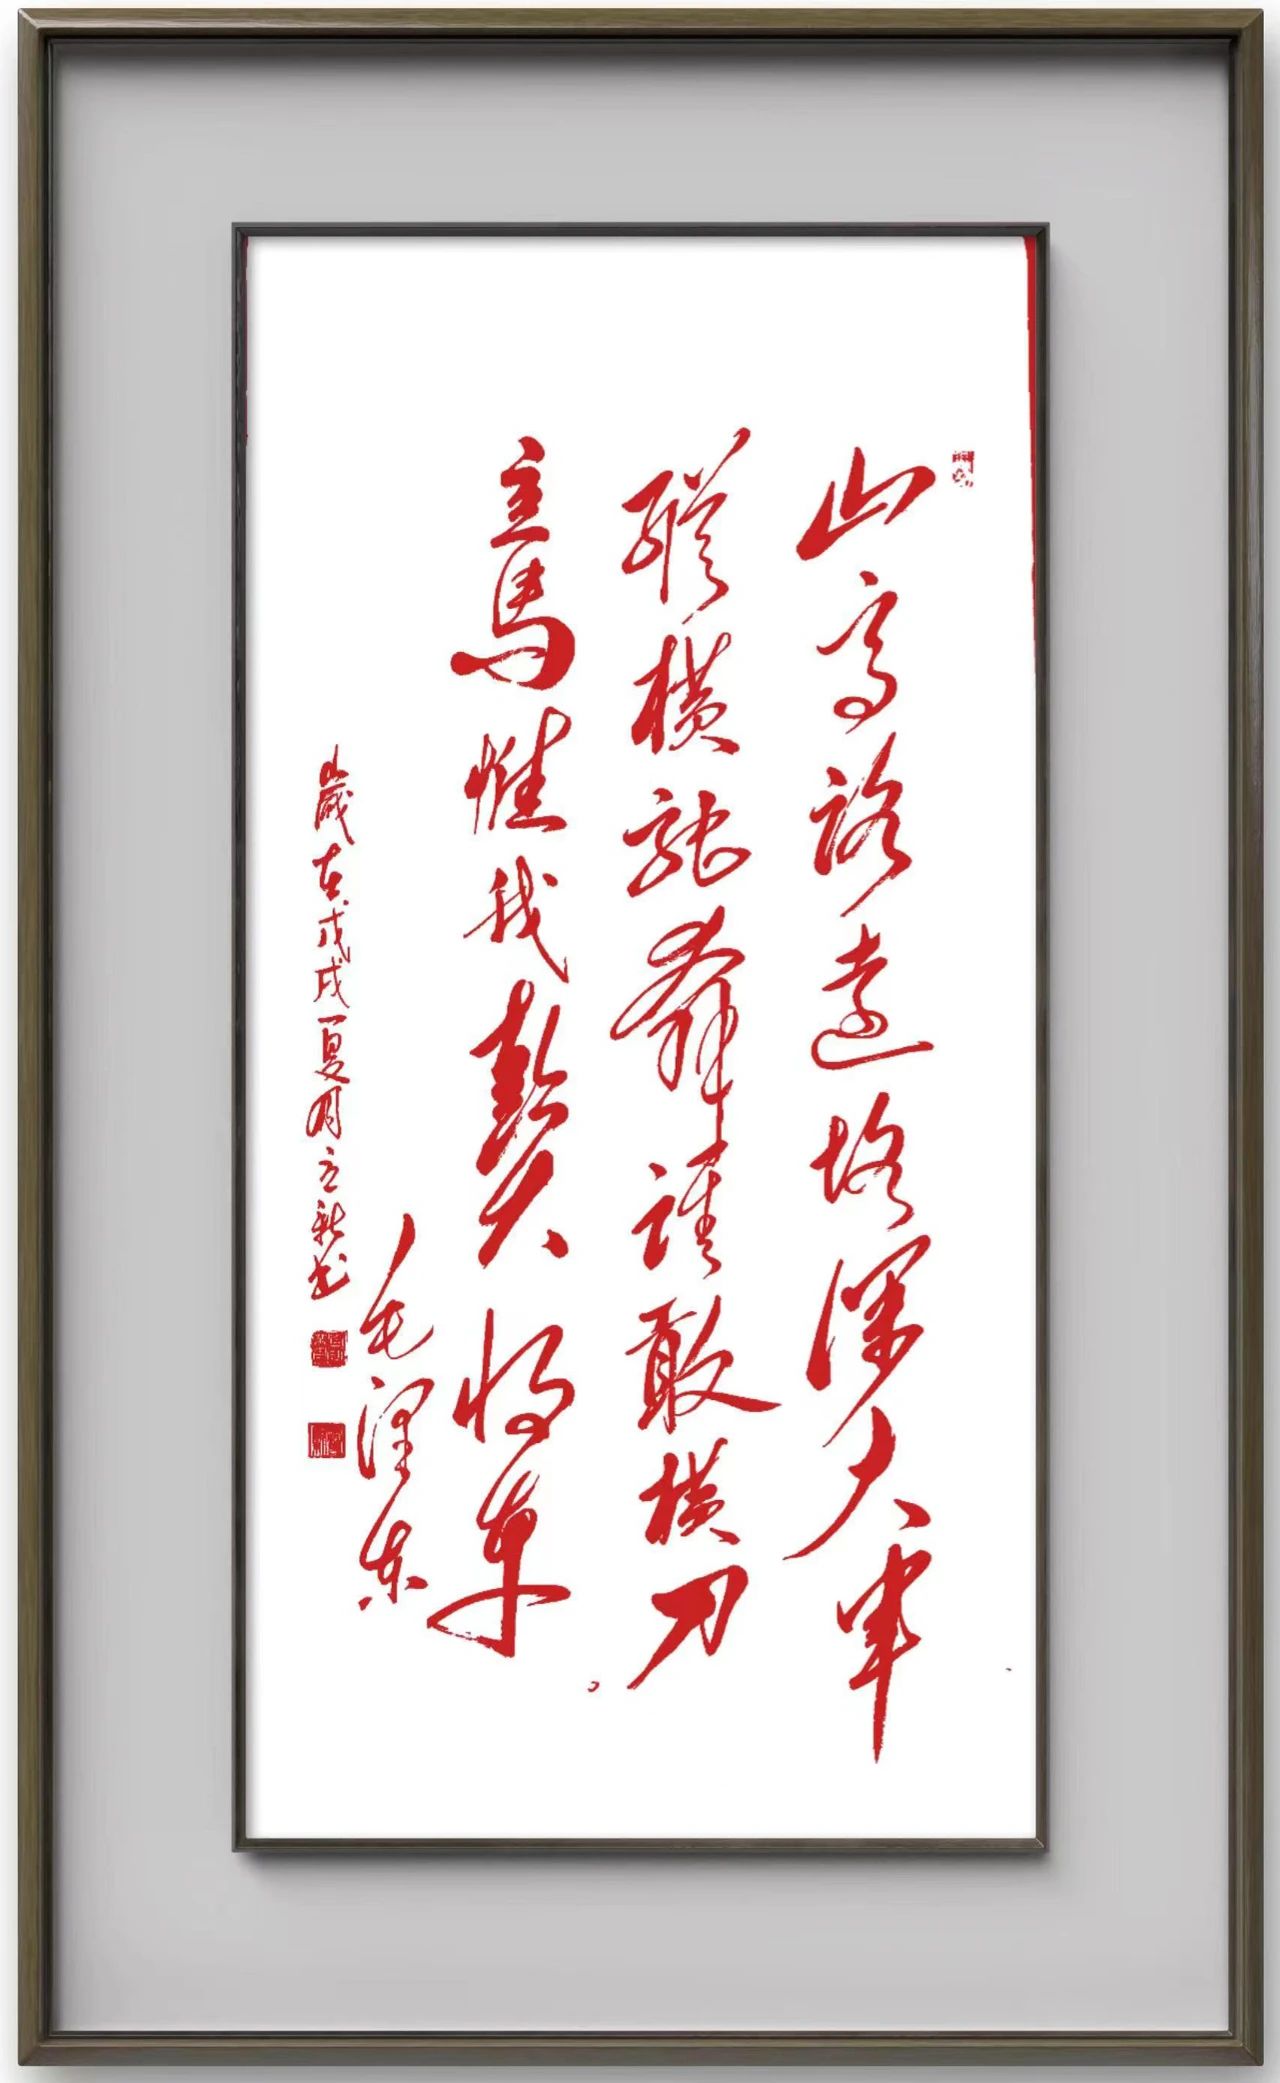 山高路遠坑深大軍
縱橫馳奔誰敢橫刀
立馬惟我彭大將軍
毛澤東
歲在戊戌夏月立秋书